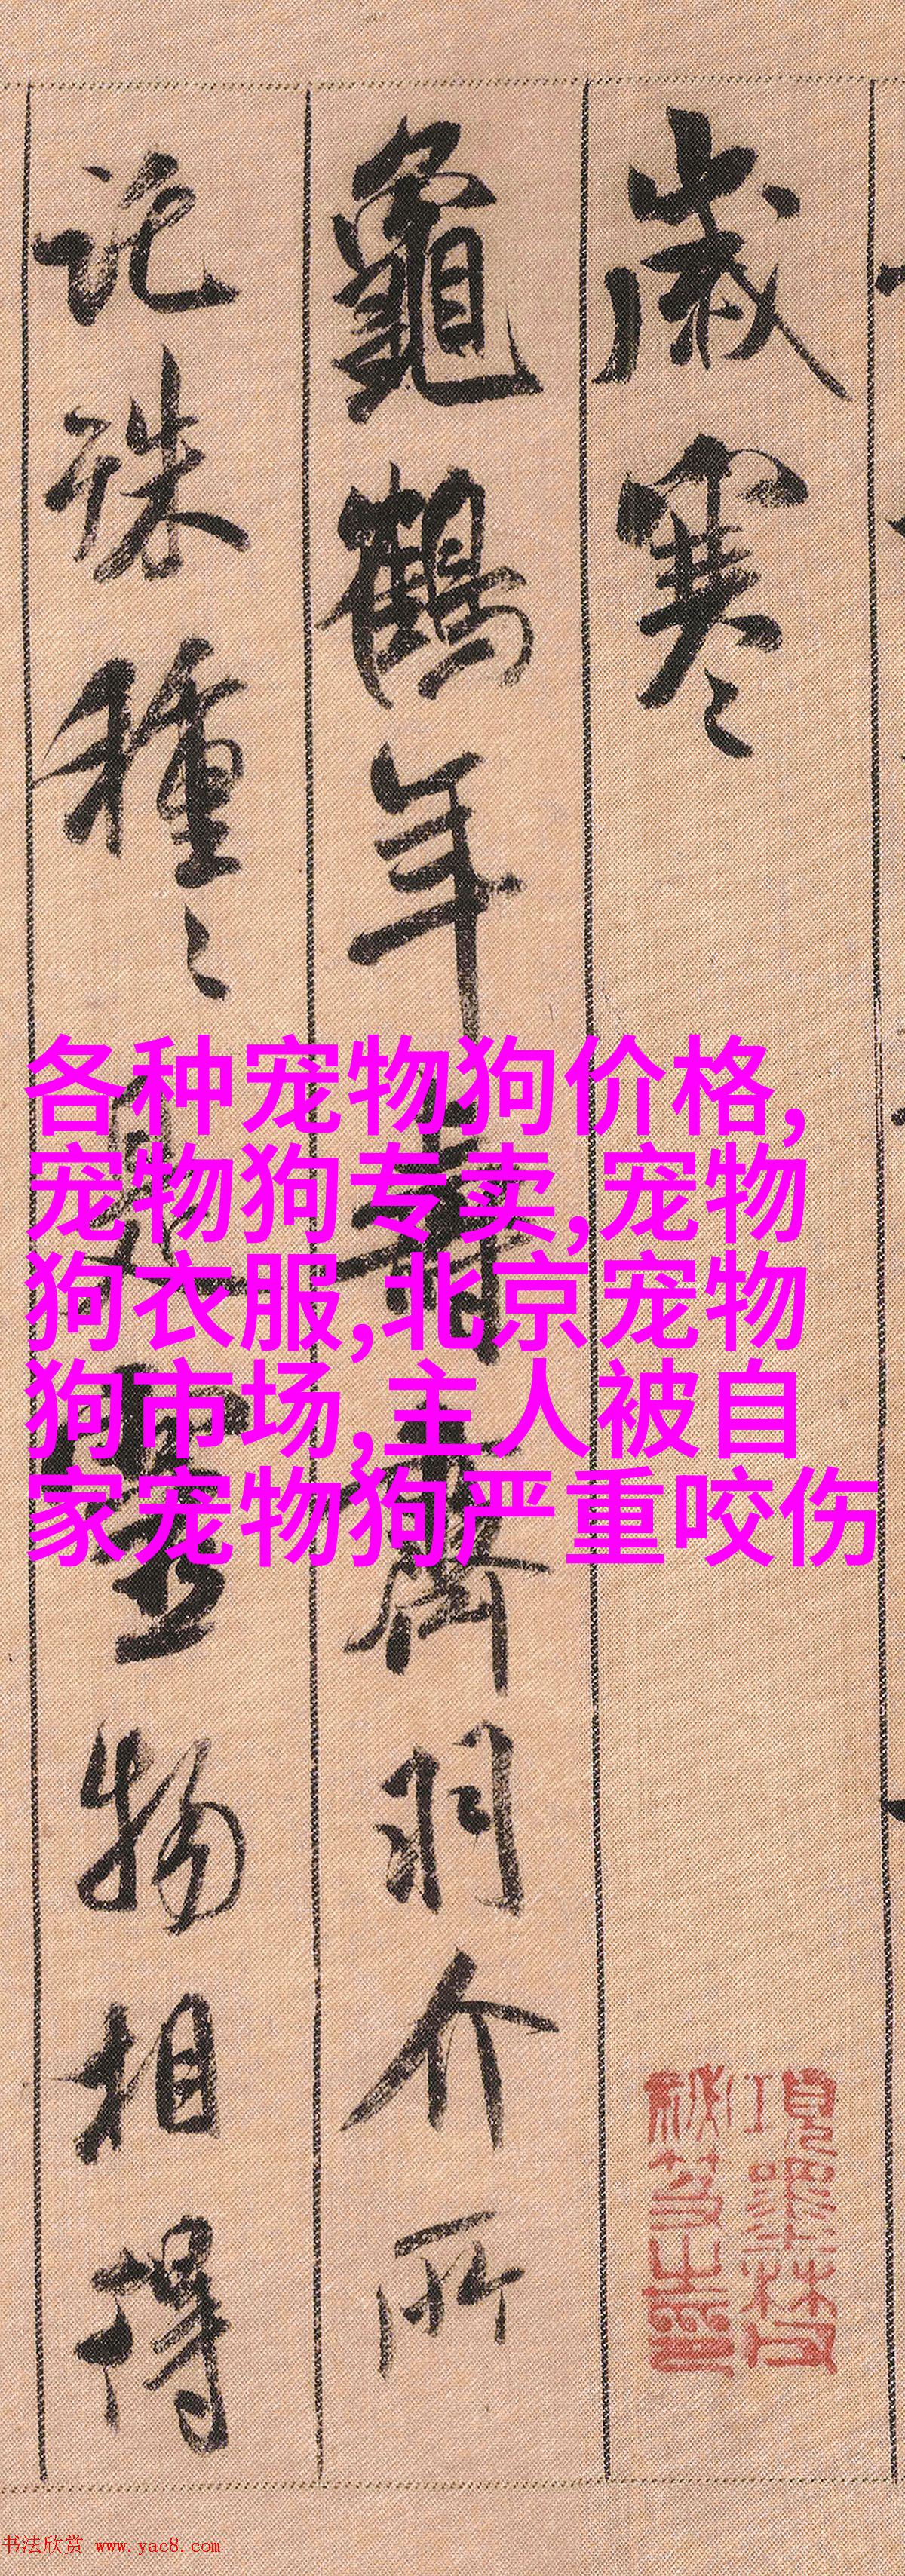 歲寒
龜鶴年壽齊羽介所
託殊種〻是靈物相得
各种宠物狗价格,
宠物狗专卖,宠物
狗衣服,北京宠物
狗市场,主人被自
家宠物狗严重咬伤
項墨林父
秘笈之印
书法欣赏 www.yac8.com